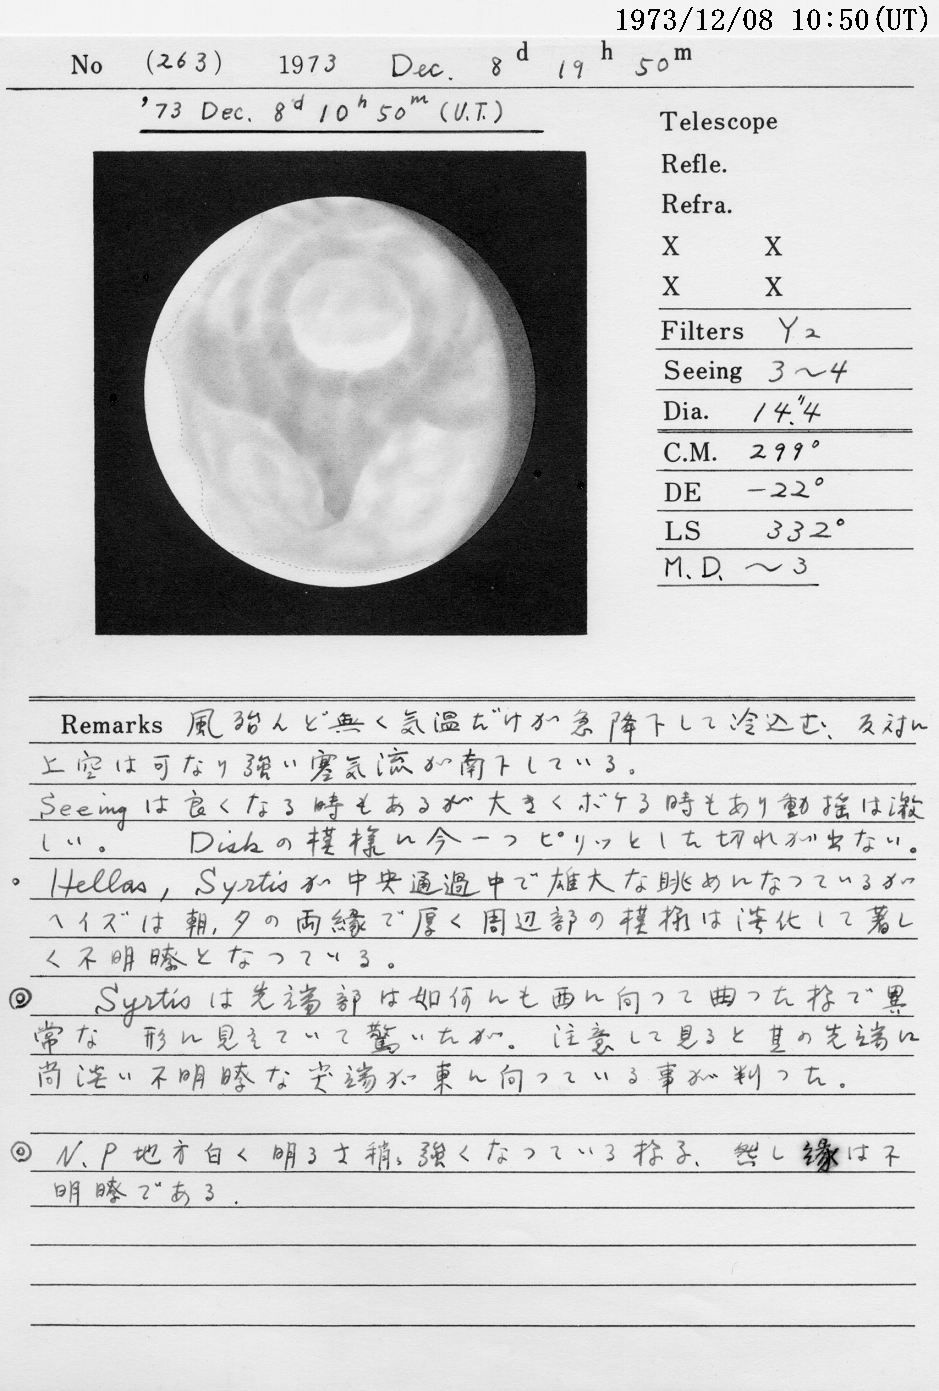 1973/12/08 10:50(UT)
No (263) 1973 Dec. 8d 19h 50m
'73 Dec. 8d 10h 50m (U.T.)
Telescope
Refle.
Refra.
X X
X X
Filters Y2
Seeing 3〜4
Dia. 14."4
C.M. 299°
DE -22°
LS 332°
M.D. 〜3
Remarks 風殆んど無く気温だけが急降下して冷込む、反対に
上空は可なり強い寒気流が南下している。
Seeingは良くなる時もあるが大きくボケる時もあり動揺は激
しい。 Diskの模様に今一つピリッとした切れが出ない。
・ Hellas, Syrtisが中央通過中で雄大な眺めになっているが
ヘイズは朝,夕の両縁で厚く周辺部の模様は淡化して著し
く不明瞭となっている。
◎ Syrtisは先端部は如何にも西に向って曲った様で異
常な 形に見えていて驚いたが。 注意して見ると其の先端に
尚淡い不明瞭な尖端が東に向っている事が判った。
◎ N.P地方白く明るさ稍々強くなっている様子、然し縁は不
明瞭である.